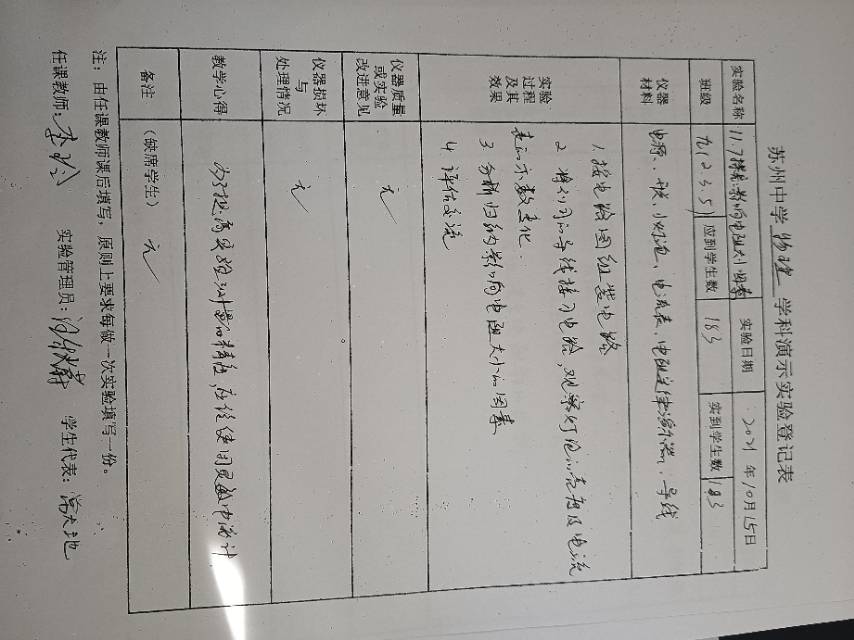 苏州中学 物理 学科演示实验登记表
实验名称 11.7探究:影响电阻大小因素 实验日期 2021年10月15日
班级 九(2.3.5) 应到学生数 183 实到学生数 183
仪器材料 电源、开关、小灯泡、电流表、电阻定律演示器、导线
实验过程及其效果
1.按电路图组装电路
2 将不同的导线接入电路,观察灯泡的亮度及电流
表的示数变化.
3 分析归纳影响电阻大小的因素
4 评估交流
仪器质量或实验改进意见 无
仪器损坏与处理情况 无
教学心得 为了提高实验测量的精确,应该使用灵敏电流计
备注 (缺席学生) 无
注:由任课教师课后填写,原则上要求每做一次实验填写一份。
任课教师: 李 实验管理员: 学生代表: 天池